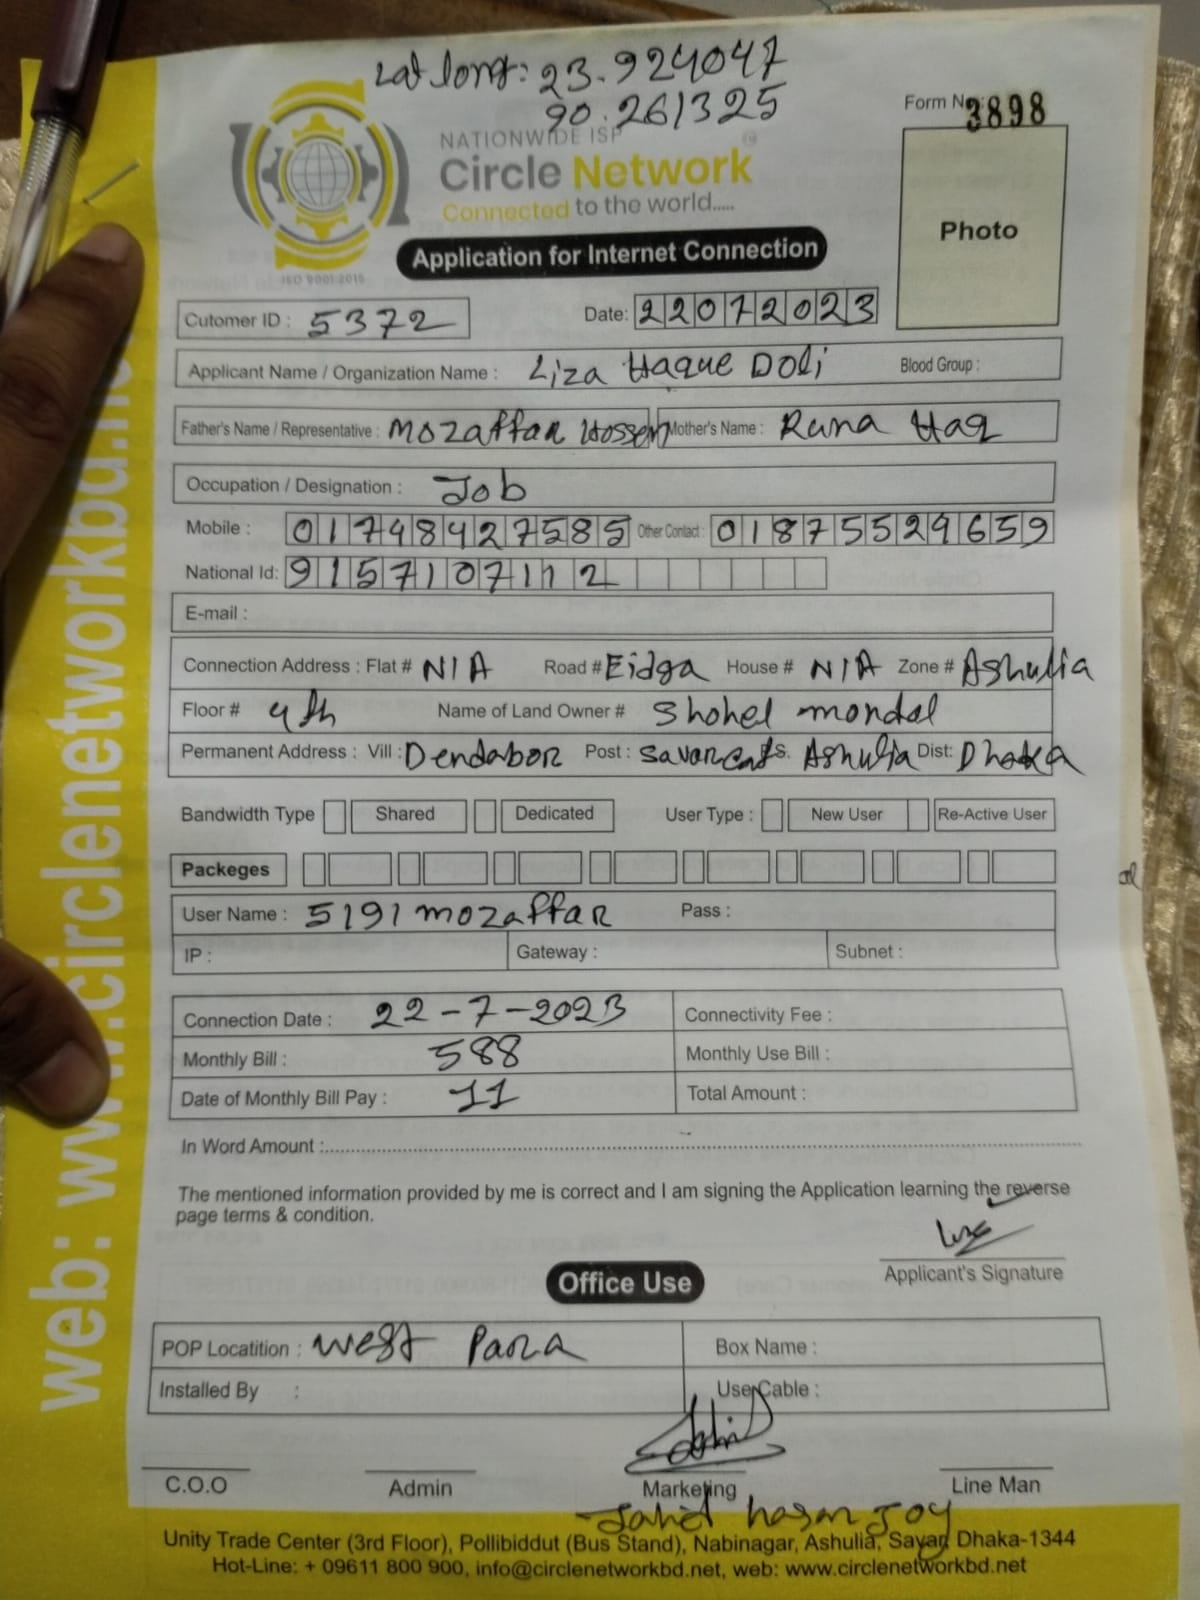 Lat long: 23.924047
90.261325
Form No: 3898
NATIONWIDE ISP
Circle Network
Connected to the world.....
ISO 9001:2015
Photo
Application for Internet Connection
Cutomer ID : 5372
Date: 22072023
Applicant Name / Organization Name : Liza Haque Doli Blood Group :
Father's Name / Representative : Mozaffar Hossen Mother's Name : Runa Haq
Occupation / Designation : Job
Mobile : 01748427585 Other Contact : 01875529659
National Id: 9157107112
E-mail :
Connection Address : Flat # N/A Road # Eidga House # N/A Zone # Ashulia
Floor # 4th Name of Land Owner # Shohel mondal
Permanent Address : Vill : Dendabor Post : Savarcat P.S. Ashulia Dist: Dhaka
Bandwidth Type Shared Dedicated User Type : New User Re-Active User
Packeges
User Name : 5191mozaffar Pass :
IP : Gateway : Subnet :
Connection Date : 22-7-2023 Connectivity Fee :
Monthly Bill : 588 Monthly Use Bill :
Date of Monthly Bill Pay : 11 Total Amount :
In Word Amount :
The mentioned information provided by me is correct and I am signing the Application learning the reverse
page terms & condition.
Liza
Applicant's Signature
Office Use
POP Locatition : West Para Box Name :
Installed By : Use Cable :
C.O.O Admin Marketing Line Man
Jahid hasan Joy
Unity Trade Center (3rd Floor), Pollibiddut (Bus Stand), Nabinagar, Ashulia, Savar, Dhaka-1344
Hot-Line: + 09611 800 900, info@circlenetworkbd.net, web: www.circlenetworkbd.net
web: www.circlenetworkbd.ne